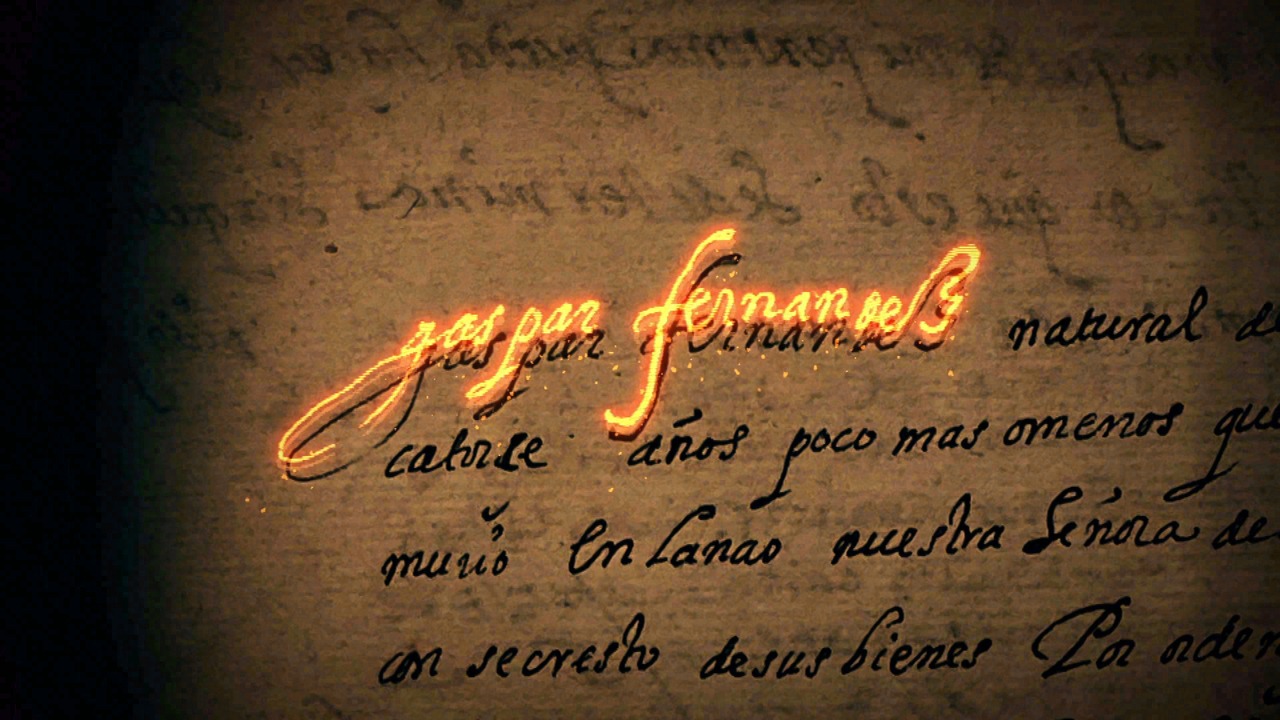 gaspar fernandes natural de
catorse años poco mas omenos que
murió En la nao nuestra Señora de
con secresto de sus bienes Por orden